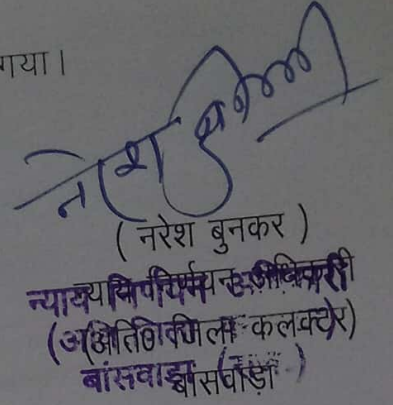 गया।
नरेश बुनकर
( नरेश बुनकर )
न्याय निर्णयन अधिकारी
(अतिo जिला कलक्टर)
बांसवाड़ा